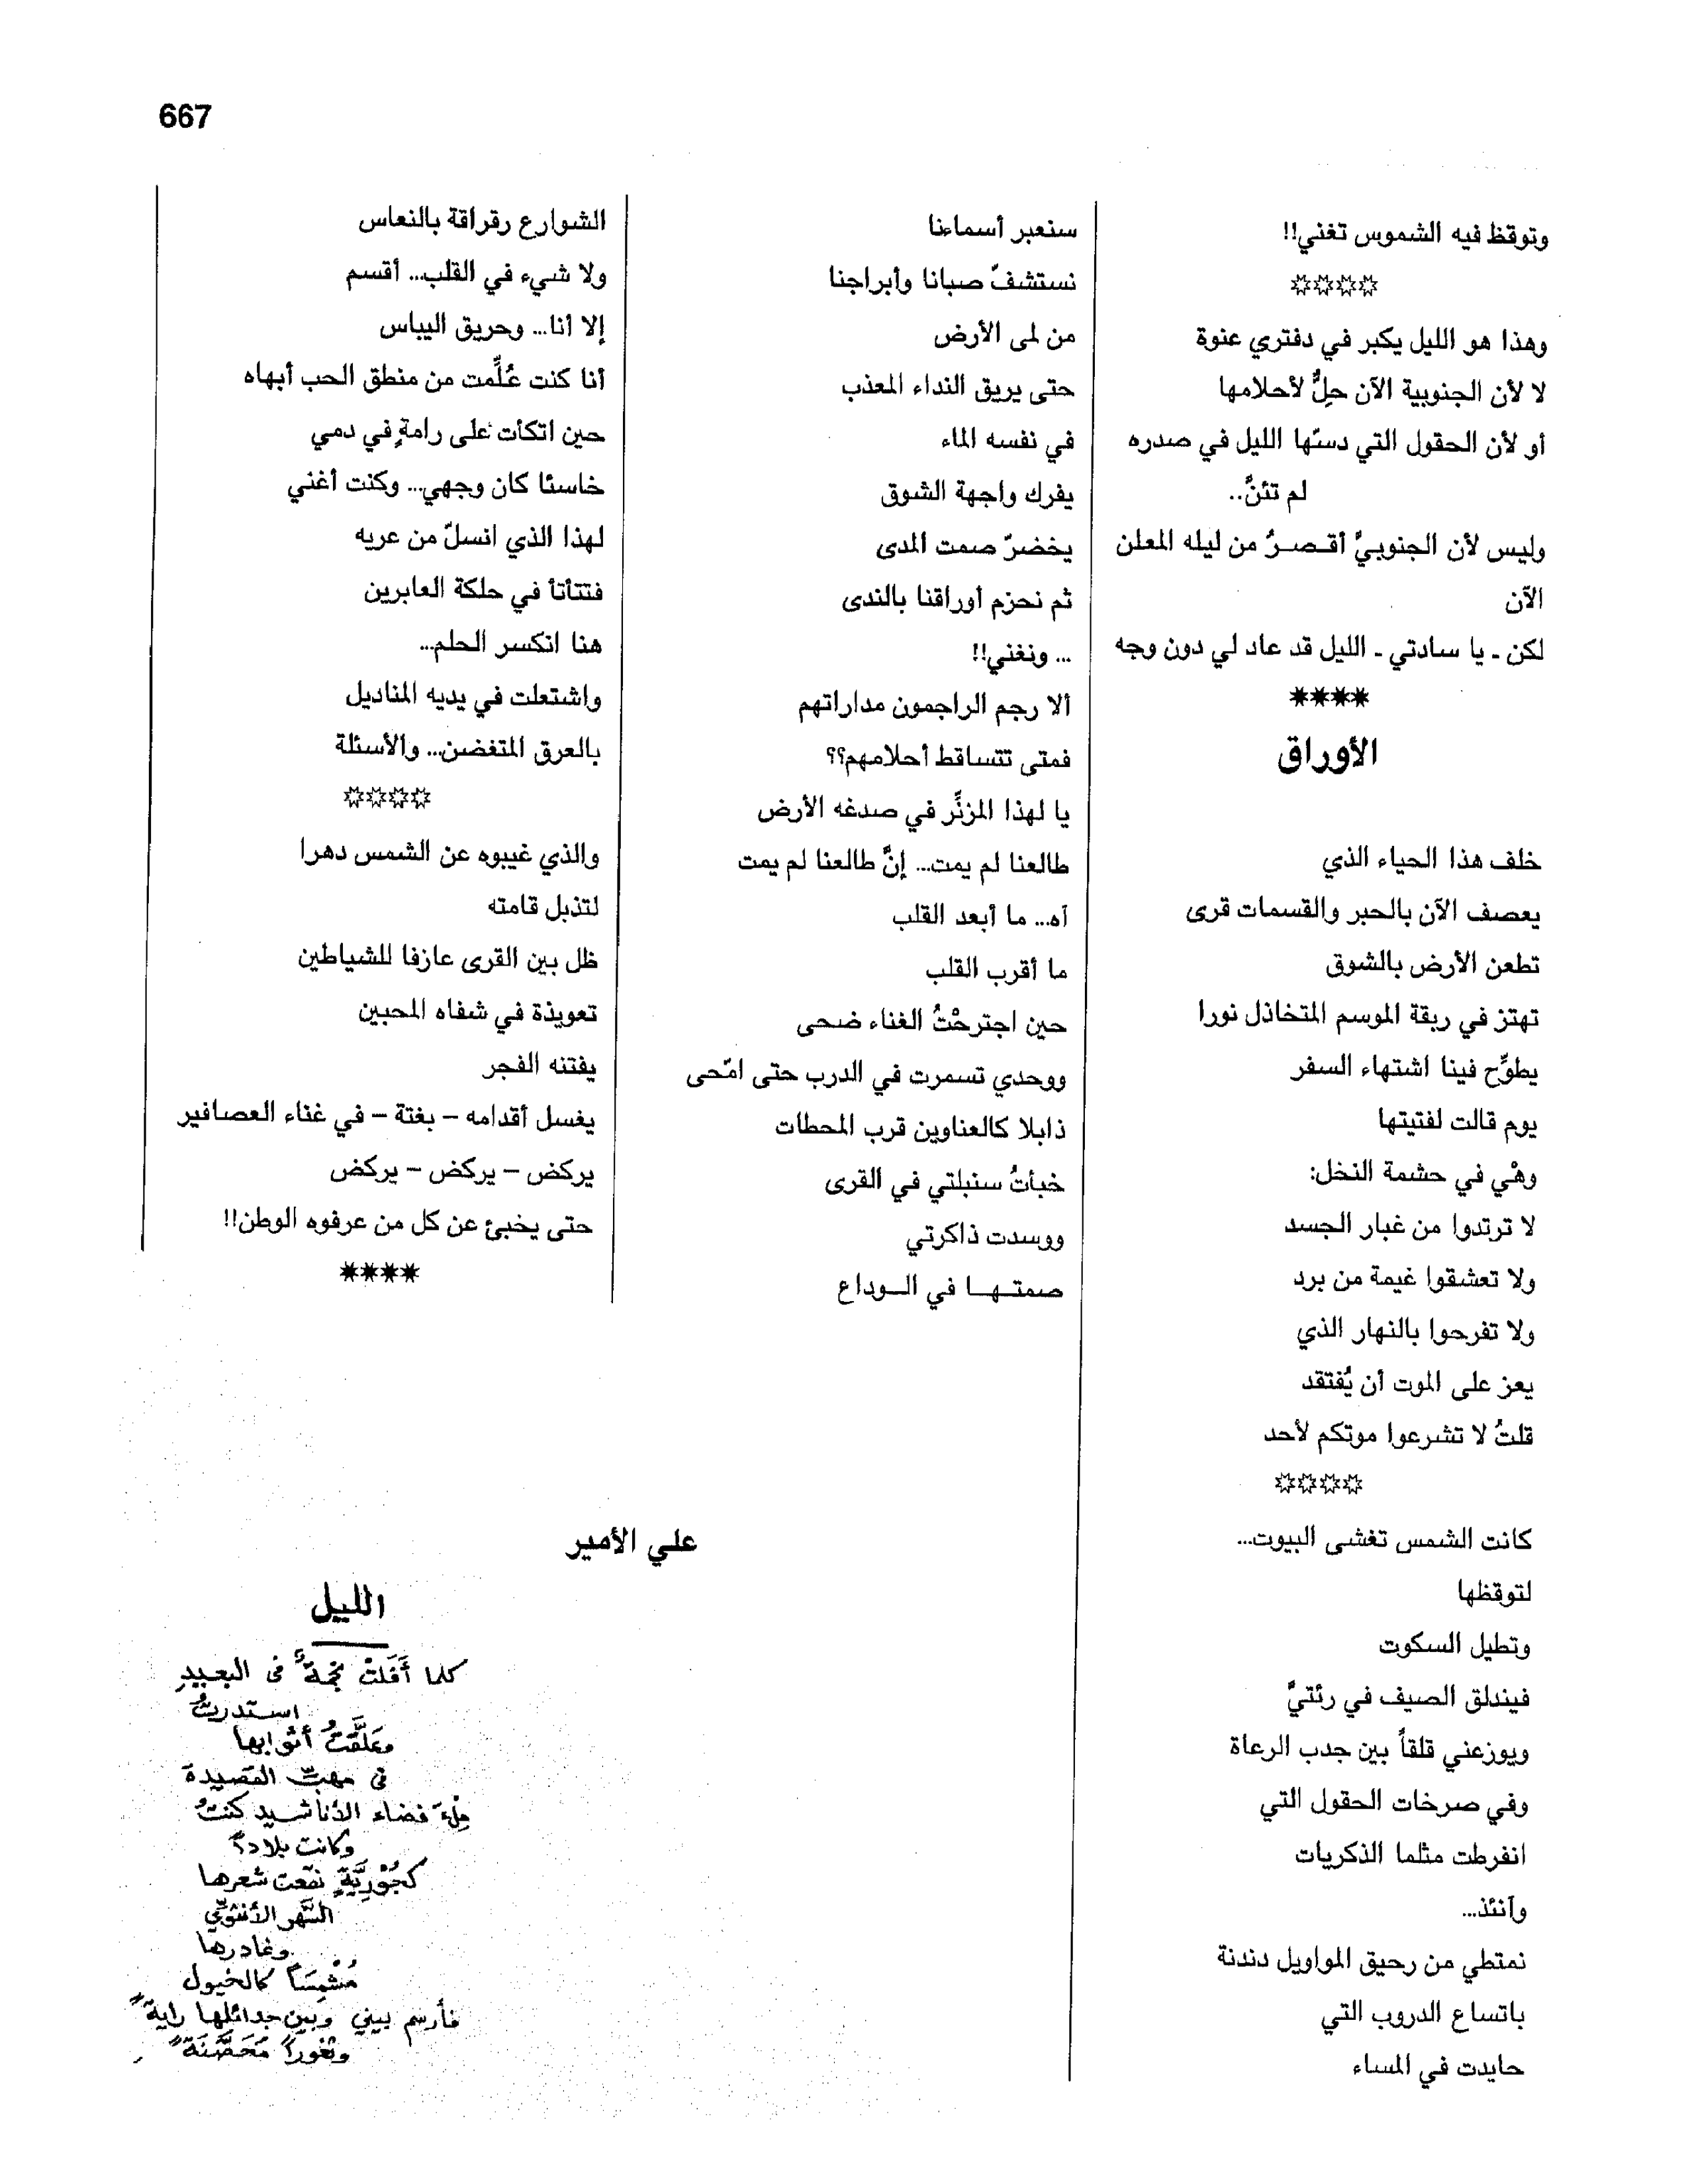 667
وتوقظ فيه الشموس تغني!!
✲✲✲✲
وهذا هو الليل يكبر في دفتري عنوة
لا لأن الجنوبية الآن حِلٌّ لأحلامها
أو لأن الحقول التي دسّها الليل في صدره
لم تئنَّ..
وليس لأن الجنوبيَّ أقـصـرُ من ليله المعلن
الآن
لكن ـ يا سادتي ـ الليل قد عاد لي دون وجه
****
الأوراق
خلف هذا الحياء الذي
يعصف الآن بالحبر والقسمات قرى
تطعن الأرض بالشوق
تهتز في ربقة الموسم المتخاذل نورا
يطوِّح فينا اشتهاء السفر
يوم قالت لفتيتها
وهْي في حشمة النخل:
لا ترتدوا من غبار الجسد
ولا تعشقوا غيمة من برد
ولا تفرحوا بالنهار الذي
يعز على الموت أن يُفتقد
قلتُ لا تشرعوا موتكم لأحد
✲✲✲✲
كانت الشمس تغشى البيوت...
لتوقظها
وتطيل السكوت
فيندلق الصيف في رئتيَّ
ويوزعني قلقاً بين جدب الرعاة
وفي صرخات الحقول التي
انفرطت مثلما الذكريات
وآنئذ...
نمتطي من رحيق المواويل دندنة
باتساع الدروب التي
حايدت في المساء
سنعبر أسماءنا
نستشفّ صبانا وأبراجنا
من لمى الأرض
حتى يريق النداء المعذب
في نفسه الماء
يفرك واجهة الشوق
يخضرّ صمت المدى
ثم نحزم أوراقنا بالندى
... ونغني!!
ألا رجم الراجمون مداراتهم
فمتى تتساقط أحلامهم؟؟
يا لهذا المزنَّر في صدغه الأرض
طالعنا لم يمت... إنَّ طالعنا لم يمت
آه... ما أبعد القلب
ما أقرب القلب
حين اجترحْتُ الغناء ضحى
ووحدي تسمرت في الدرب حتى امّحى
ذابلا كالعناوين قرب المحطات
خبأتُ سنبلتي في القرى
ووسدت ذاكرتي
صمتـهـا في الـوداع
الشوارع رقراقة بالنعاس
ولا شيء في القلب... أقسم
إلا أنا... وحريق اليباس
أنا كنت عُلِّمت من منطق الحب أبهاه
حين اتكأت على رامةٍ في دمي
خاسئا كان وجهي... وكنت أغني
لهذا الذي انسلّ من عريه
فتتأتأ في حلكة العابرين
هنا انكسر الحلم...
واشتعلت في يديه المناديل
بالعرق المتغضن... والأسئلة
✲✲✲✲
والذي غيبوه عن الشمس دهرا
لتذبل قامته
ظل بين القرى عازفا للشياطين
تعويذة في شفاه المحبين
يفتنه الفجر
يغسل أقدامه – بغتة – في غناء العصافير
يركض – يركض – يركض
حتى يخبئ عن كل من عرفوه الوطن!!
****
علي الأمير
الليل
كلما أَفَلَتْ نجمةٌ في البعيدِ
استدرتُ
وعَلَّقْتُ أثوابها
في مهبِّ القصيدة
مِلْءَ فضاء الأناشيد كنتُ
وكانت بلاداً
كجُوْرِيَّةٍ نقعت شعرها
السَّهَر الأنثويِّ
وغادرها
مُشْمِسَاً كالخيول
فأرسم بيني وبين جدائلها رايةً
وثغوراً مُحَصَّنَةً